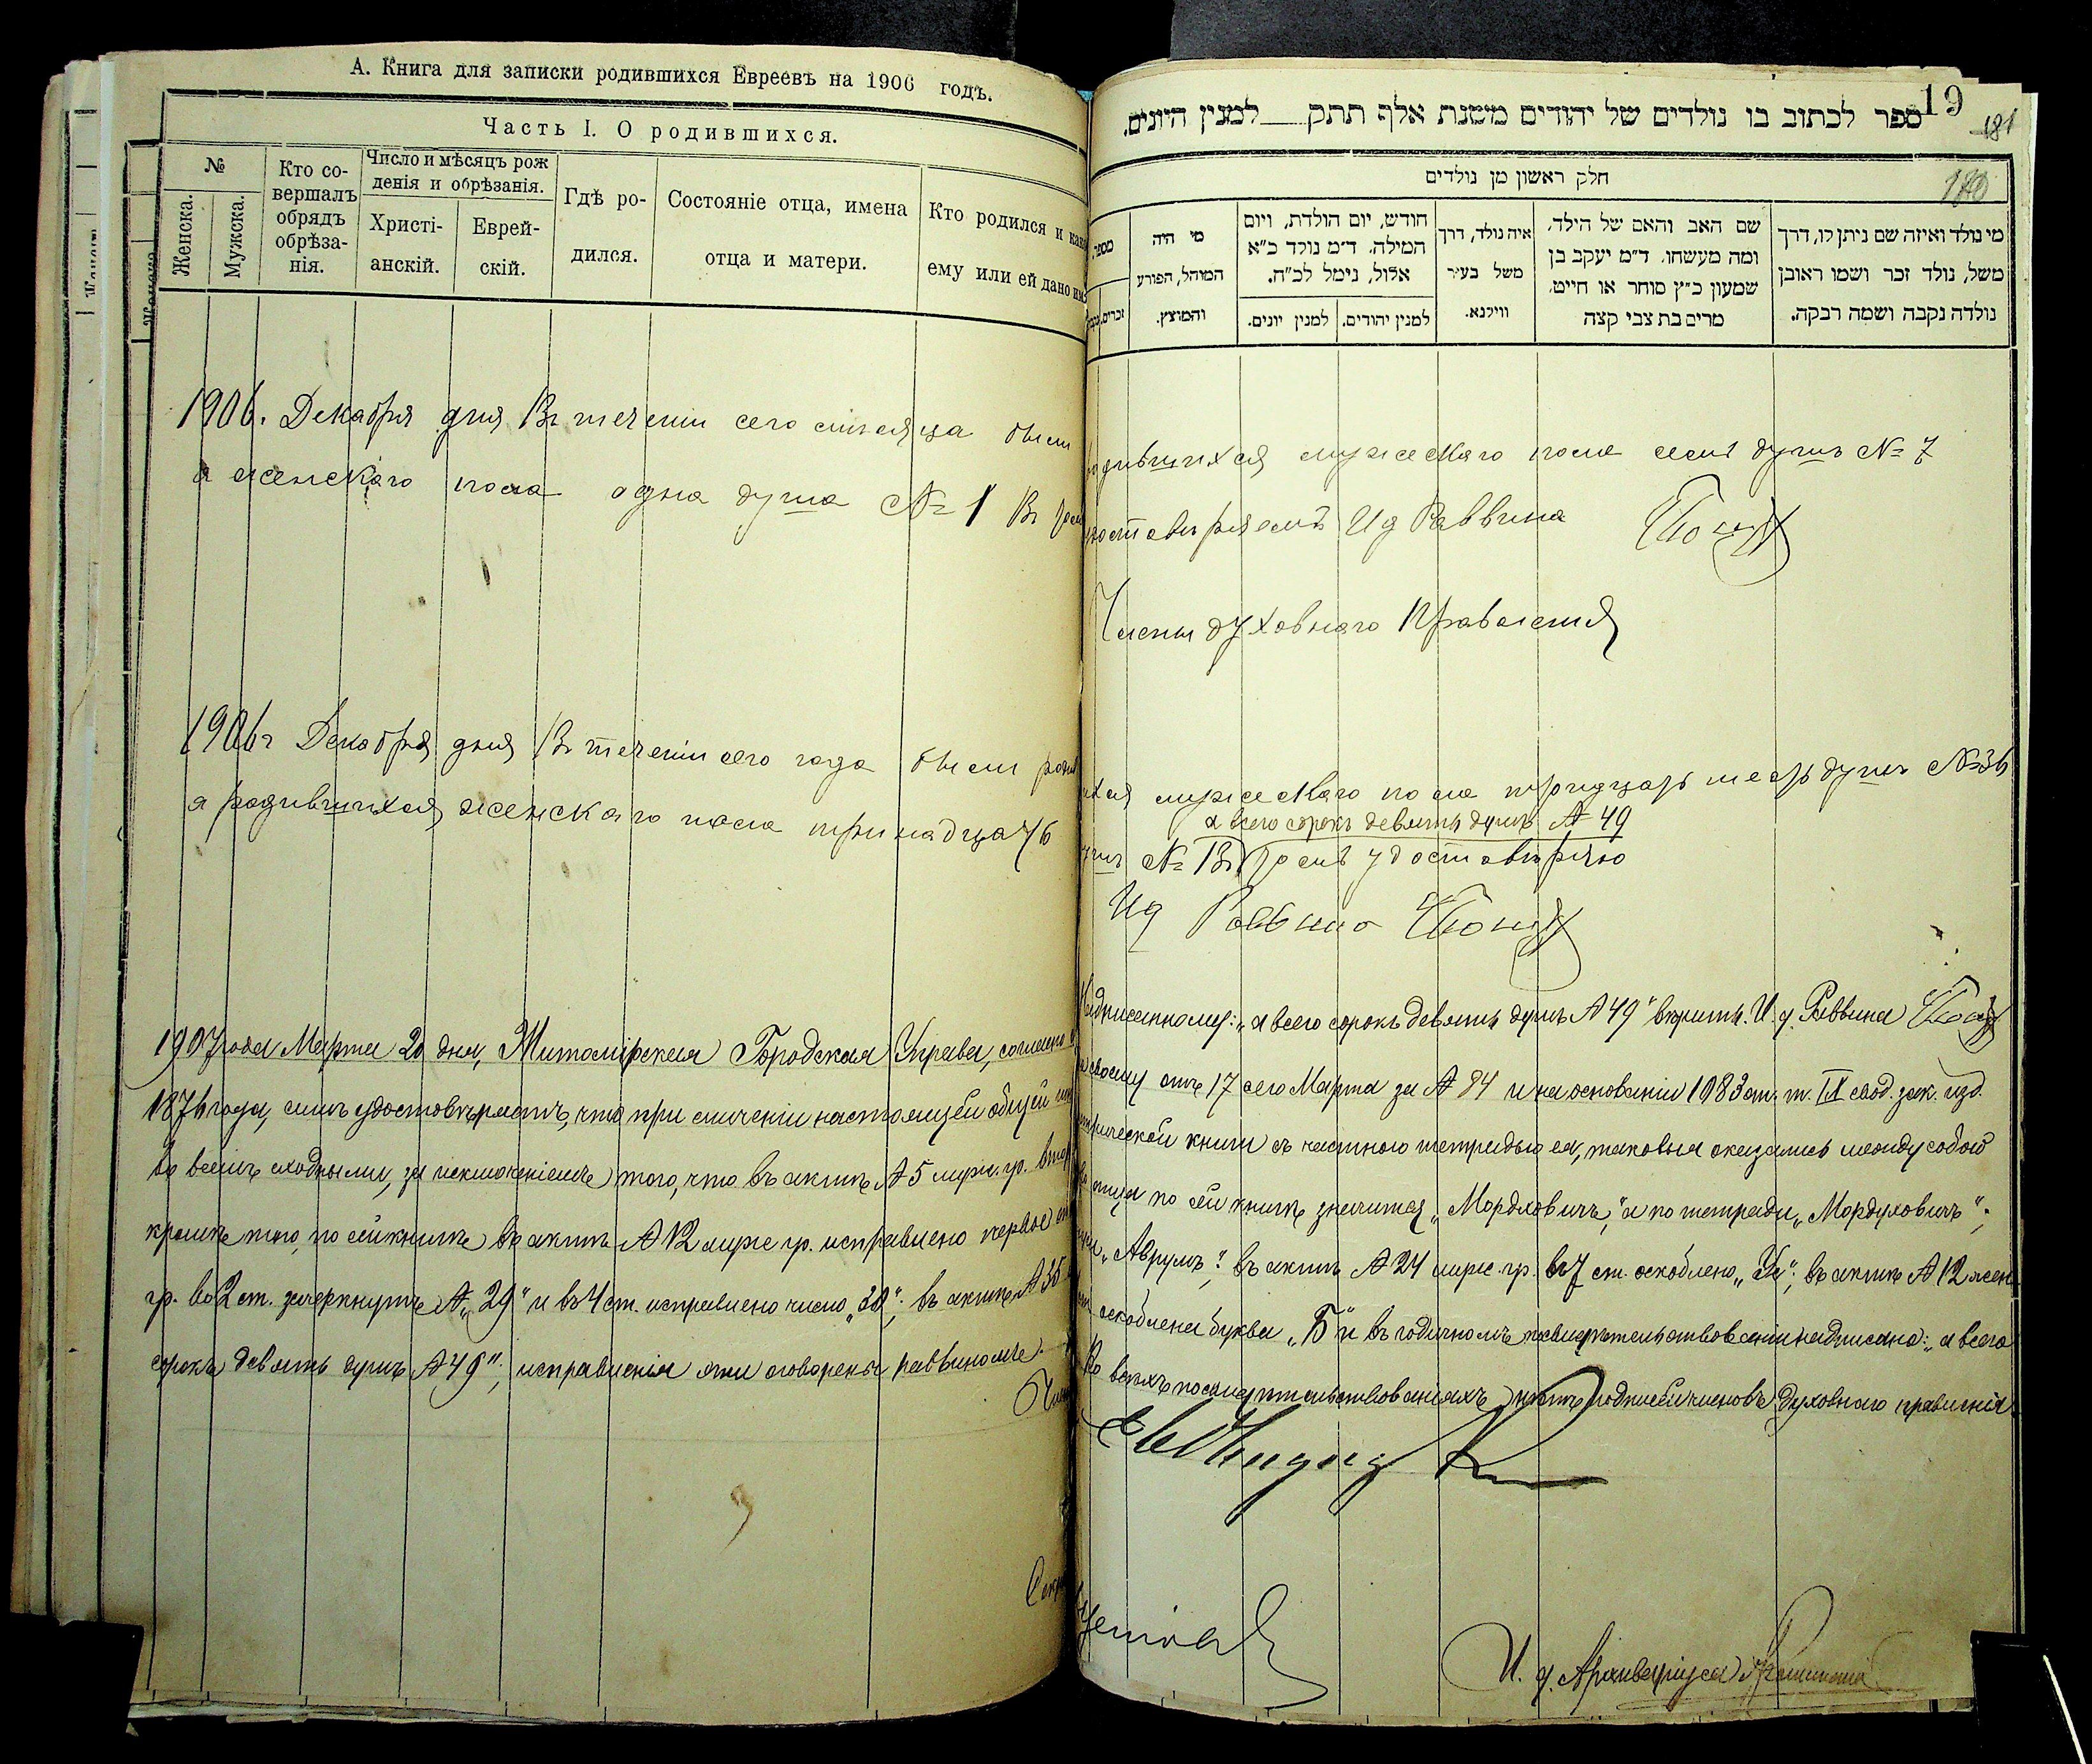 А. Книга для записки родившихся Евреевъ на 1906 годъ.
Часть I. О родившихся.
№
Женска.
Мужска.
Кто со-
вершалъ
обрядъ
обрѣза-
нія.
Число и мѣсяцъ рож
денія и обрѣзанія.
Христі-
анскій.
Еврей-
скій.
Гдѣ ро-
дился.
Состояніе отца, имена
отца и матери.
Кто родился и како
ему или ей дано им
1906. Декабря дня Въ теченіи сего мѣсяца были
а женскаго пола одна душа № 1 Въ
1906г Декабря дня Въ теченіи сего года были
а родившихся женскаго пола тринадцать
1907 года Марта 20 дня, Житомірская Городская Управа, согласно
1876 года, симъ удостовѣряетъ, что при сличеніи настоящей общей
во всемъ сходными, за исключеніемъ того, что въ актѣ № 5 муж. гр.
кромѣ того, по сей книгѣ въ актѣ № 12 муж гр. исправлено первое
гр. во 2 ст. зачеркнутъ № „29" и въ 4 ст. исправлено число „30"; въ актѣ № 35
сорокъ девять душъ № 49"; исправленія эти оговорены раввиномъ.
19
181
180
ספר לכתוב בו נולדים של יהודים משנת אלף תתק למנין היונים.
חלק ראשון מן נולדים
מי נולד ואיזה שם ניתן לו, דרך
משל, נולד זכר ושמו ראובן
נולדה נקבה ושמה רבקה.
שם האב והאם של הילד,
ומה מעשהו. ד״מ יעקב בן
שמעון כ״ץ סוחר או חייט,
מרים בת צבי קצה
איה נולד, דרך
משל בעיר
ווילנא.
חודש, יום הולדת, ויום
המילה. ד״מ נולד כ״א
אלול, נימל לכ״ח.
למנין יהודים.
למנין יונים.
מי היה
המוהל, הפורע
והמוצץ.
מספר
זכרים.
родившихся мужескаго пола семь душъ № 7
удостовѣряемъ Ид Раввина
Члены духовнаго Правленія
мужескаго пола тридцать шесть душъ № 36
а всего сорокъ девять душъ № 49
№ 13 удостовѣряю
Ид Раввина
Надписанному: „а всего сорокъ девять душъ № 49" вѣрить. И. д. Раввина
своему отъ 17 сего Марта за № 84 и на основаніи 1083 ст. т. IX свод. зак. изд.
метрической книги съ частною тетрадью ея, таковыя оказались между собой
отца по сей книгѣ значится „Мордховичъ", а по тетради „Мордуховичъ";
„Аврумъ"; въ актѣ № 24 муж. гр. въ 7 ст. оскоблено „Ги"; въ актѣ № 12 жен
оскоблена буква „Б" и въ годичномъ надписано: „а всего
Во всѣхъ посвидѣтельствованіяхъ нѣтъ подписей членовъ духовнаго правленія.
И. д. Архиваріуса